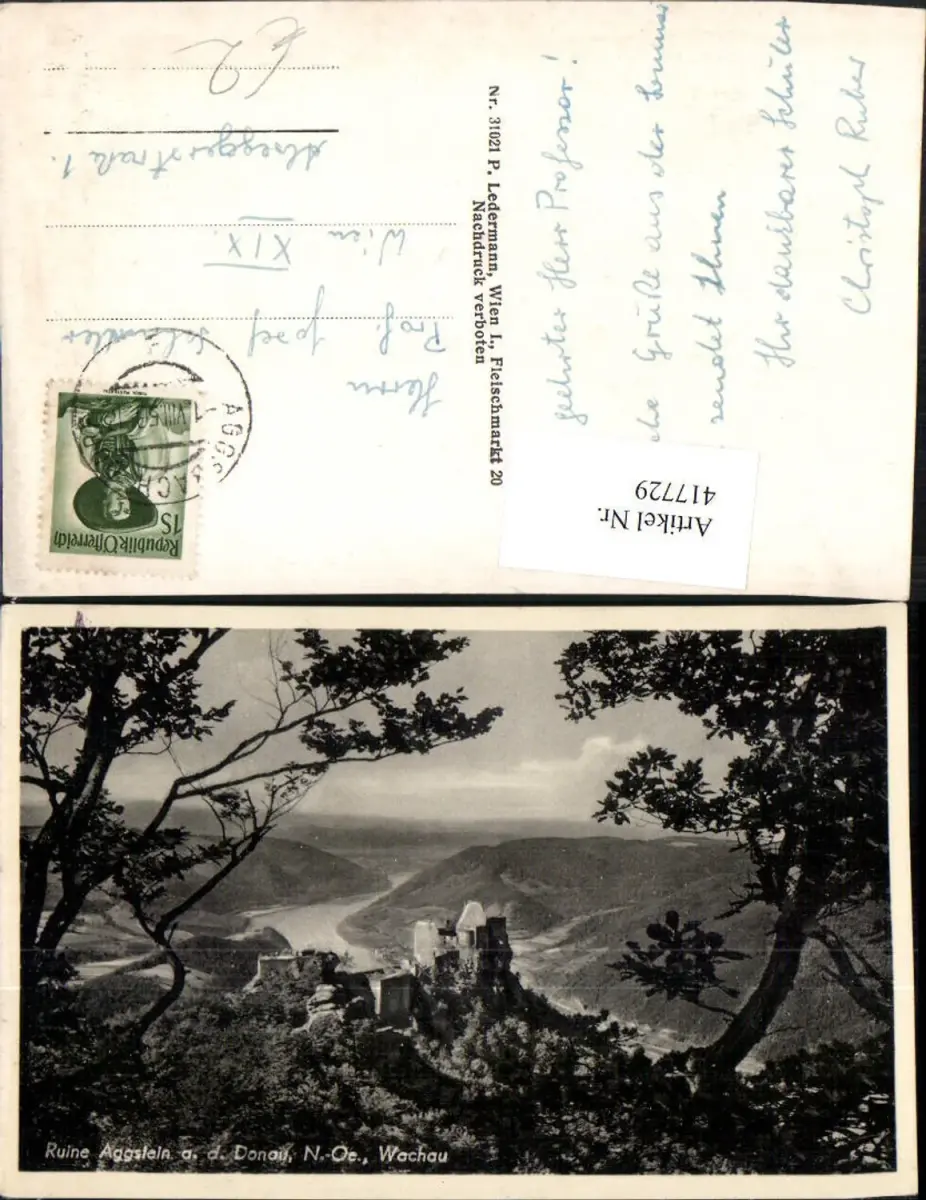 geehrter Herr Professor!
che Grüße aus der Sommer
sendet Ihnen
Ihr dankbarer Schüler
Christoph Ruber
Artikel Nr.
417729
Nr. 31021 P. Ledermann, Wien I., Fleischmarkt 20
Nachdruck verboten
Herrn
Prof. Josef Schindler
Wien XIX.
straße 1.
€2
Republik Österreich
1S
AGGSBACH
Ruine Aggstein a. d. Donau, N.-Oe., Wachau